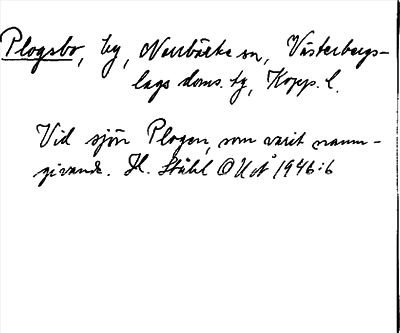 Plogsbo, by, Norrbärke sn, Västerbergs-
lags doms. tg, Kopp. l.
Vid sjön Plogen, som varit namn-
givande. H. Ståhl OUÅ 1946:6